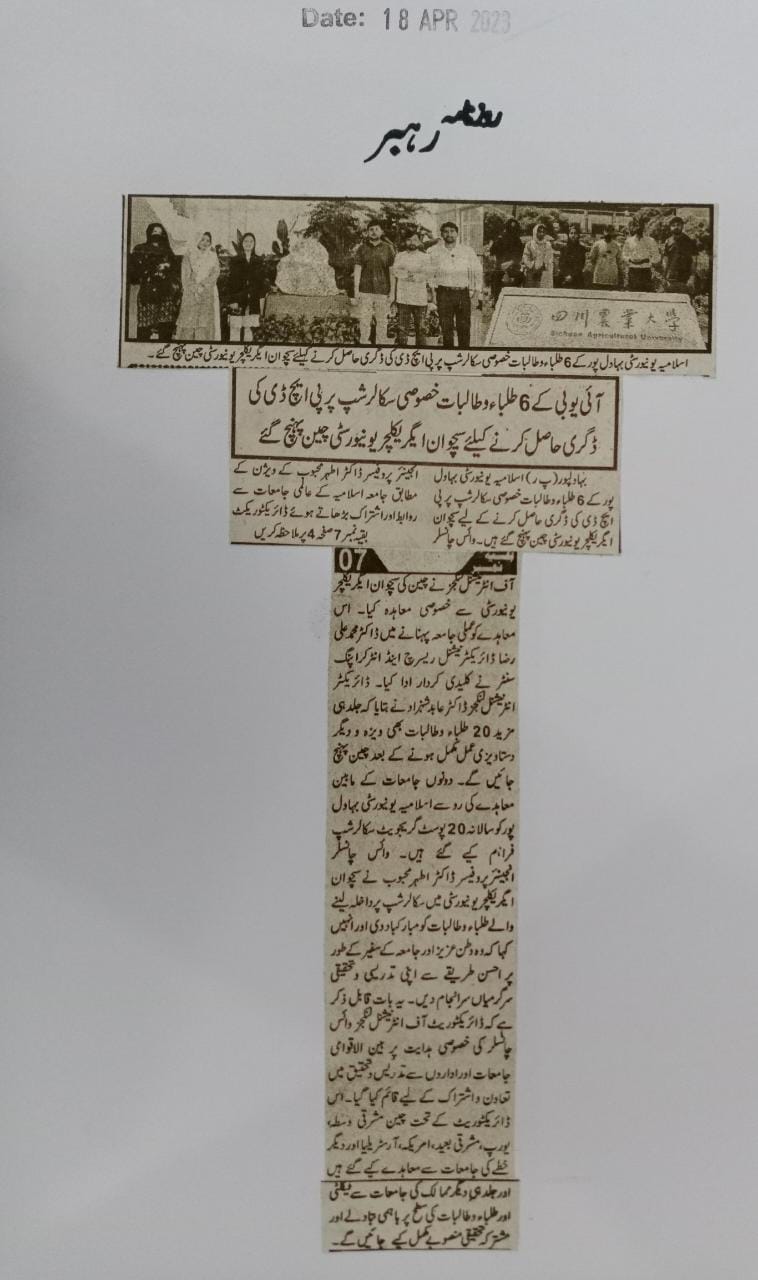 Date: 18 APR 2023
روزنامہ رهبر
四川農業大學
Sichuan Agricultural University
اسلامیہ یونیورسٹی بہاول پور کے 6 طلباء و طالبات خصوصی سکالرشپ پر پی ایچ ڈی کی ڈگری حاصل کرنے کیلئے سچوان ایگریکلچر یونیورسٹی چین پہنچ گئے۔
آئی یو بی کے 6 طلباء و طالبات خصوصی سکالرشپ پر پی ایچ ڈی کی
ڈگری حاصل کرنے کیلئے سچوان ایگریکلچر یونیورسٹی چین پہنچ گئے
بہاولپور (پ ر) اسلامیہ یونیورسٹی بہاول
پور کے 6 طلباء و طالبات خصوصی سکالرشپ پر پی
ایچ ڈی کی ڈگری حاصل کرنے کے لیے سچوان
ایگریکلچر یونیورسٹی چین پہنچ گئے ہیں۔ وائس چانسلر
انجینئر پروفیسر ڈاکٹر اطہر محبوب کے ویژن کے
مطابق جامعہ اسلامیہ کے عالمی جامعات سے
روابط اور اشتراک بڑھاتے ہوئے ڈائریکٹوریٹ
بقیہ نمبر 7 صفحہ 4 پر ملاحظہ کریں
بقیہ نمبر 07
آف انٹرنیشنل لنکجز نے چین کی سچوان ایگریکلچر
یونیورسٹی سے خصوصی معاہدہ کیا۔ اس
معاہدے کو عملی جامہ پہنانے میں ڈاکٹر محمد علی
رضا ڈائریکٹر نیشنل ریسرچ اینڈ انٹر کراپنگ
سنٹر نے کلیدی کردار ادا کیا۔ ڈائریکٹر
انٹرنیشنل لنکجز ڈاکٹر عابد شہزاد نے بتایا کہ جلد ہی
مزید 20 طلباء و طالبات بھی ویزہ و دیگر
دستاویزی عمل مکمل ہونے کے بعد چین پہنچ
جائیں گے۔ دونوں جامعات کے مابین
معاہدے کی رو سے اسلامیہ یونیورسٹی بہاول
پور کو سالانہ 20 پوسٹ گریجویٹ سکالرشپ
فراہم کیے گئے ہیں۔ وائس چانسلر
انجینئر پروفیسر ڈاکٹر اطہر محبوب نے سچوان
ایگریکلچر یونیورسٹی میں سکالرشپ پر داخلہ لینے
والے طلباء و طالبات کو مبارکباد دی اور انہیں
کہا کہ وہ وطن عزیز اور جامعہ کے سفیر کے طور
پر احسن طریقے سے اپنی تدریسی و تحقیقی
سرگرمیاں سرانجام دیں۔ یہ بات قابل ذکر
ہے کہ ڈائریکٹوریٹ آف انٹرنیشنل لنکجز وائس
چانسلر کی خصوصی ہدایت پر بین الاقوامی
جامعات اور اداروں سے تدریس و تحقیق میں
تعاون و اشتراک کے لیے قائم کیا گیا۔ اس
ڈائریکٹوریٹ کے تحت چین مشرقی وسطہ،
یورپ، مشرقی بعید، امریکہ، آسٹریلیا اور دیگر
خطے کی جامعات سے معاہدے کیے گئے ہیں
اور جلد ہی دیگر ممالک کی جامعات سے فیکلٹی
اور طلباء و طالبات کی سطح پر باہمی تبادلے اور
مشترکہ تحقیقی منصوبے مکمل کیے جائیں گے۔